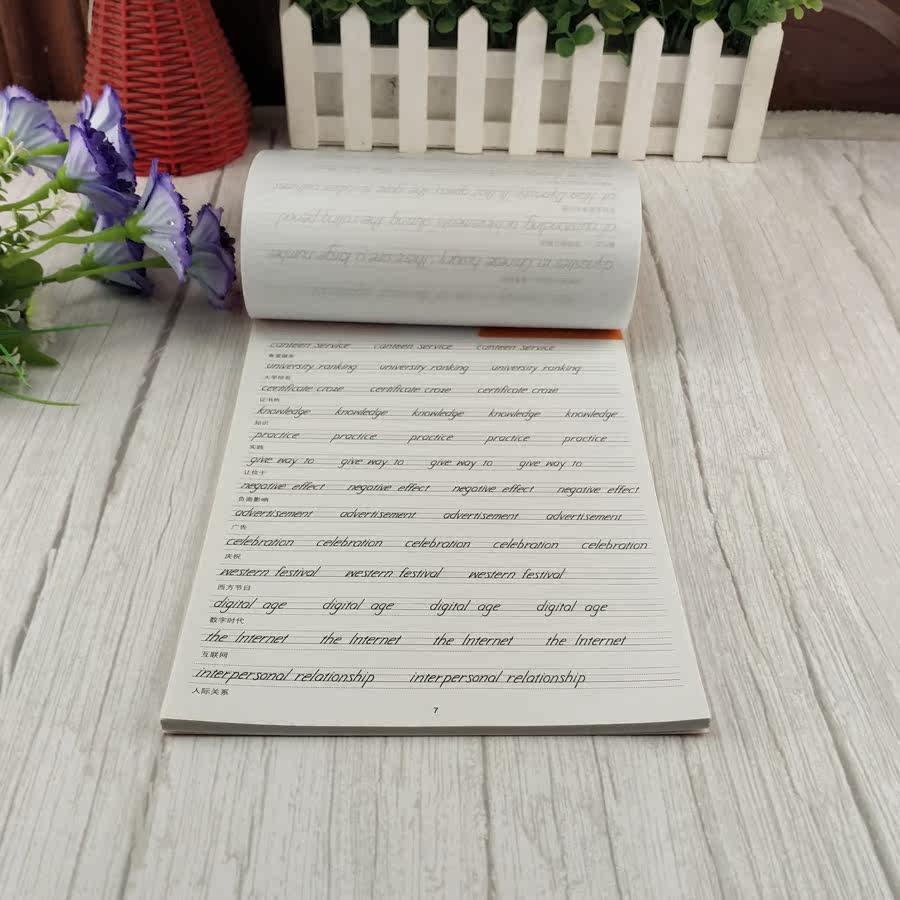 canteen service canteen service canteen service
食堂服务
university ranking university ranking university ranking
大学排名
certificate craze certificate craze certificate craze
证书热
knowledge knowledge knowledge knowledge knowledge
知识
practice practice practice practice practice
实践
give way to give way to give way to give way to
让位于
negative effect negative effect negative effect negative effect
负面影响
advertisement advertisement advertisement advertisement
广告
celebration celebration celebration celebration celebration
庆祝
western festival western festival western festival
西方节日
digital age digital age digital age digital age
数字时代
the Internet the Internet the Internet the Internet
互联网
interpersonal relationship interpersonal relationship
人际关系
7